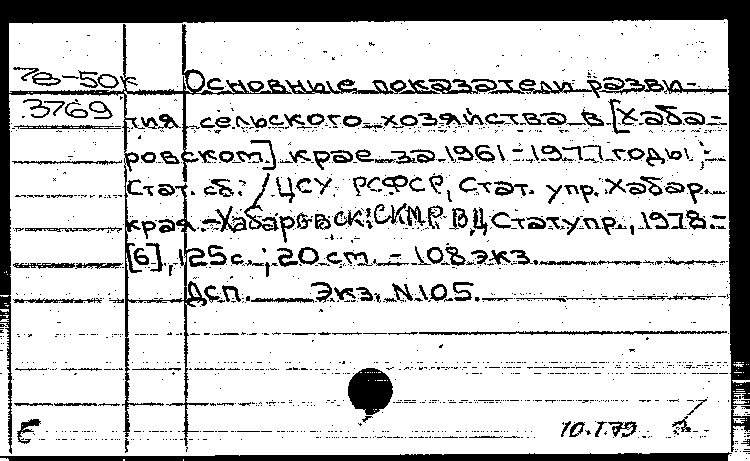 78-50к Основные показатели разви-
3769 тия сельского хозяйства в [Хаба-
ровском] крае за 1961-1977 годы:
Стат. сб. / ЦСУ РСФСР, Стат. упр. Хабар.
края. - Хабаровск: ВЦ Статупр., 1978.-
[6], 125 с.; 20 ст. - 108 экз.
Дсп. Экз. N 105.
10.I.79